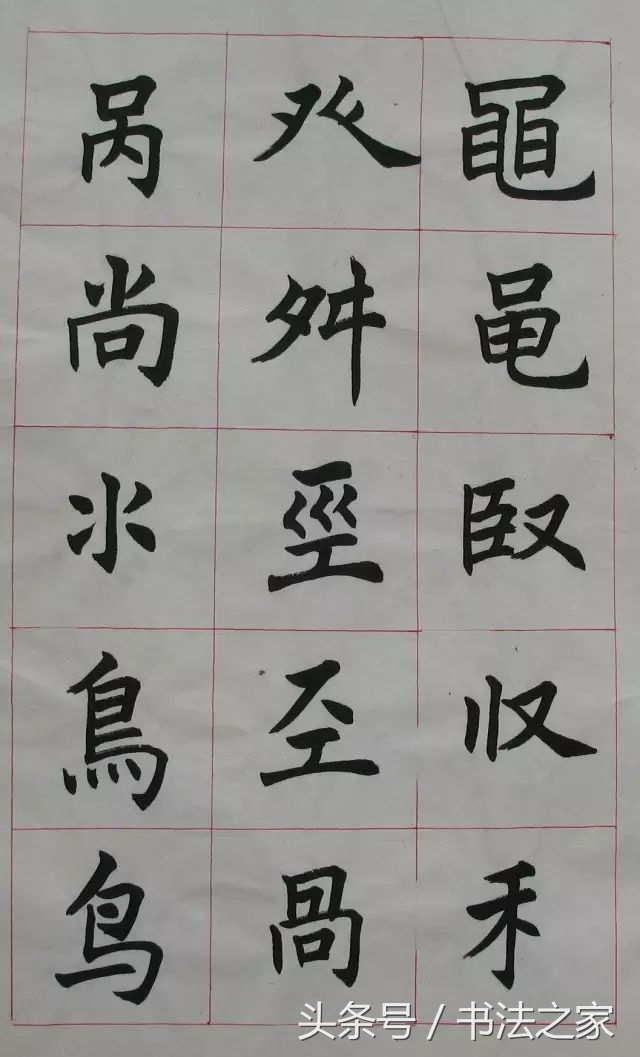 黽黾臤禾
癶舛巠𢀖咼
呙尚氺鳥鸟
头条号 / 书法之家